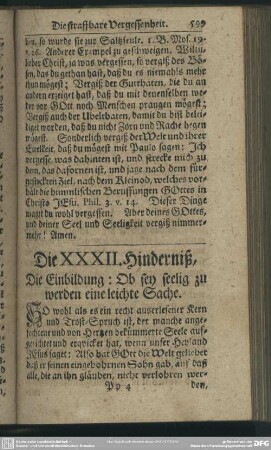 Die straffbare Vergessenheit. 599
hen, so wurde sie zur Saltzseule. 1. B. Mos. 19.
v. 26. Anderer Exempel zu geschweigen. Willtu,
lieber Christ, ja was vergessen, so vergiß des Bö-
sen, das du gethan hast, daß du es niemahls mehr
thun mögest; Vergiß der Gutthaten, die du an
andern erzeiget hast, daß du mit denenselben we-
der vor GOtt noch Menschen prangen mögest;
Vergiß auch der Übelthaten, damit du bist belei-
diget worden, daß du nicht Zorn und Rache hegen
mögest. Sonderlich vergiß der Welt und ihrer
Eitelkeit, daß du mögest mit Paulo sagen: Ich
vergesse was dahinten ist, und strecke mich zu
dem, das dafornen ist, und jage nach dem für-
gesteckten Ziel, nach dem Kleinod, welches vor-
hält die himmlischen Beruffungen GOttes in
Christo JEsu, Phil. 3. v. 14. Dieser Dinge
magst du wohl vergessen. Aber deines GOttes,
und deiner Seel und Seeligkeit vergiß nimmer-
mehr! Amen.
Die XXXII. Hinderniß,
Die Einbildung: Ob sey seelig zu
werden eine leichte Sache.
SO wohl als es ein recht auserlesener Kern
und Trost-Spruch ist, der manche ange-
fochtene und von Hertzen bekümmerte Seele auf-
gerichtet und erqvicket hat, wenn unser Heyland
JEsus saget: Also hat GOtt die Welt geliebet
daß er seinen eingebohrnen Sohn gab, auf daß
alle, die an ihn gläuben, nicht verlohren wer-
Pp 4 den,